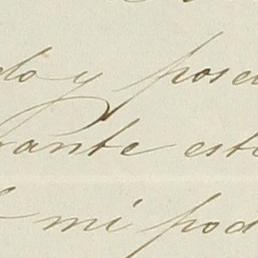 do y posei
rante este
mi pod